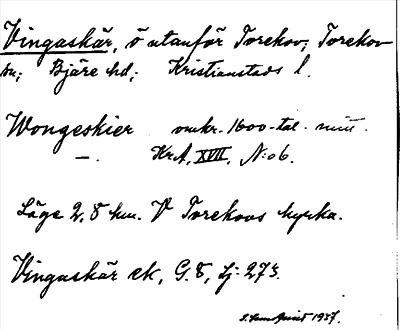 Vingaskär, ö utanför Torekov; Torekov
sn; Bjäre hd; Kristianstads l.
Wongeskier omkr. 1600-tal. mitt.
—. KrA, XVII, N:o 6.
Läge 2,8 km. V Torekovs kyrka.
Vingaskär ek, G.8, Sj: 273.
1937.